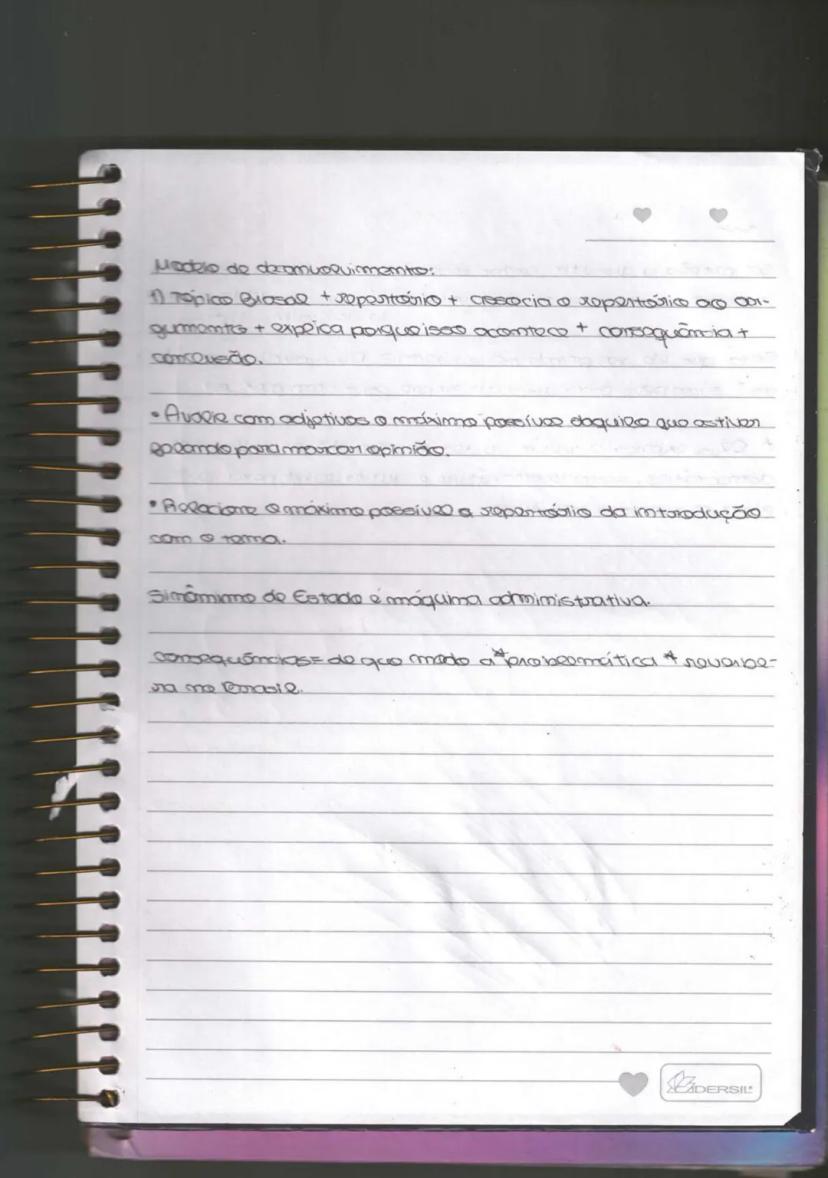 Modelo de desenvolvimento:
1) Tópico frasal + repertório + associa o repertório ao ar-
gumento + explica porque isso acontece + consequência +
conclusão.
• Avalie com adjetivos o máximo possível daquilo que estiver
falando para marcar opinião.
• Relacione o máximo possível o repertório da introdução
com o tema.
Sinônimo de Estado é máquina administrativa.
consequências = de que modo a * problemática * reverbe-
ra no Brasil.
DERSIL